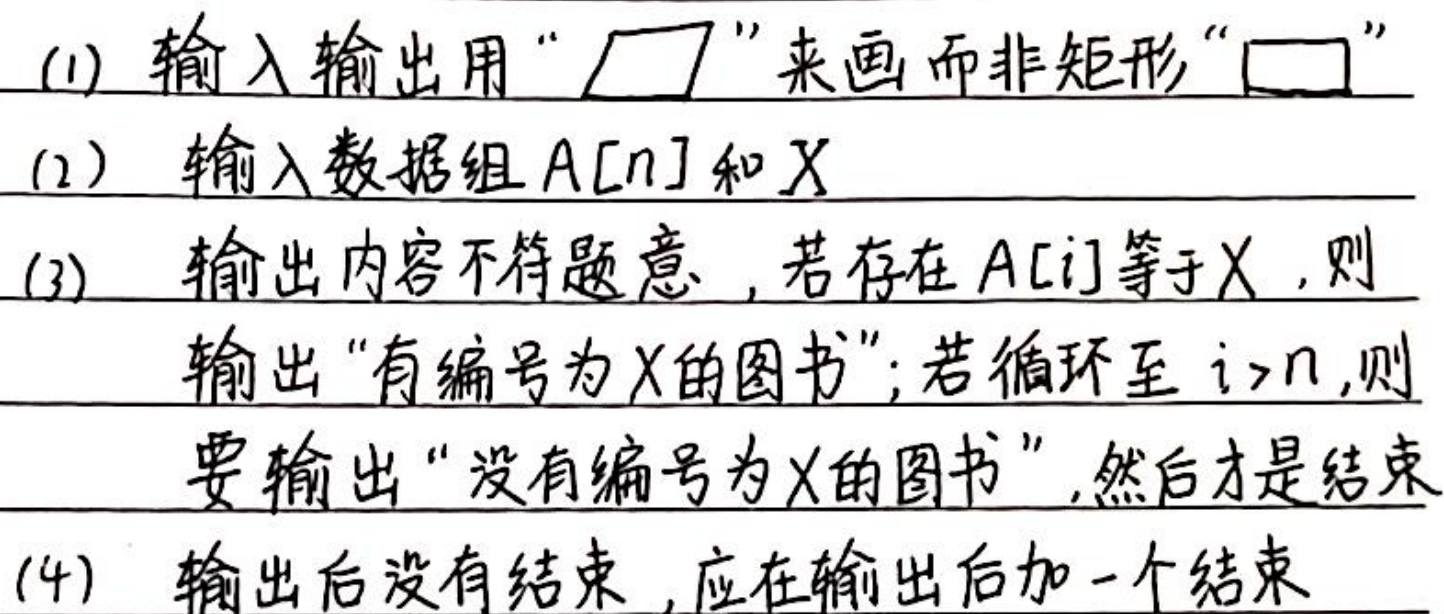 (1) 输入输出用“▱”来画而非矩形“▭”
(2) 输入数据组A[n]和X
(3) 输出内容不符题意，若存在A[i]等于X，则
输出“有编号为X的图书”；若循环至 i>n,则
要输出“没有编号为X的图书”，然后才是结束
(4) 输出后没有结束，应在输出后加一个结束